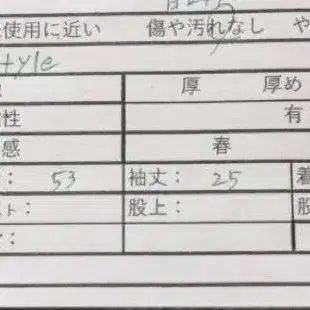 使用に近い 傷や汚れなし や
tyle
厚 厚め
性 有
感 春
: 53 袖丈: 25 着
スト: 股上: 股
: